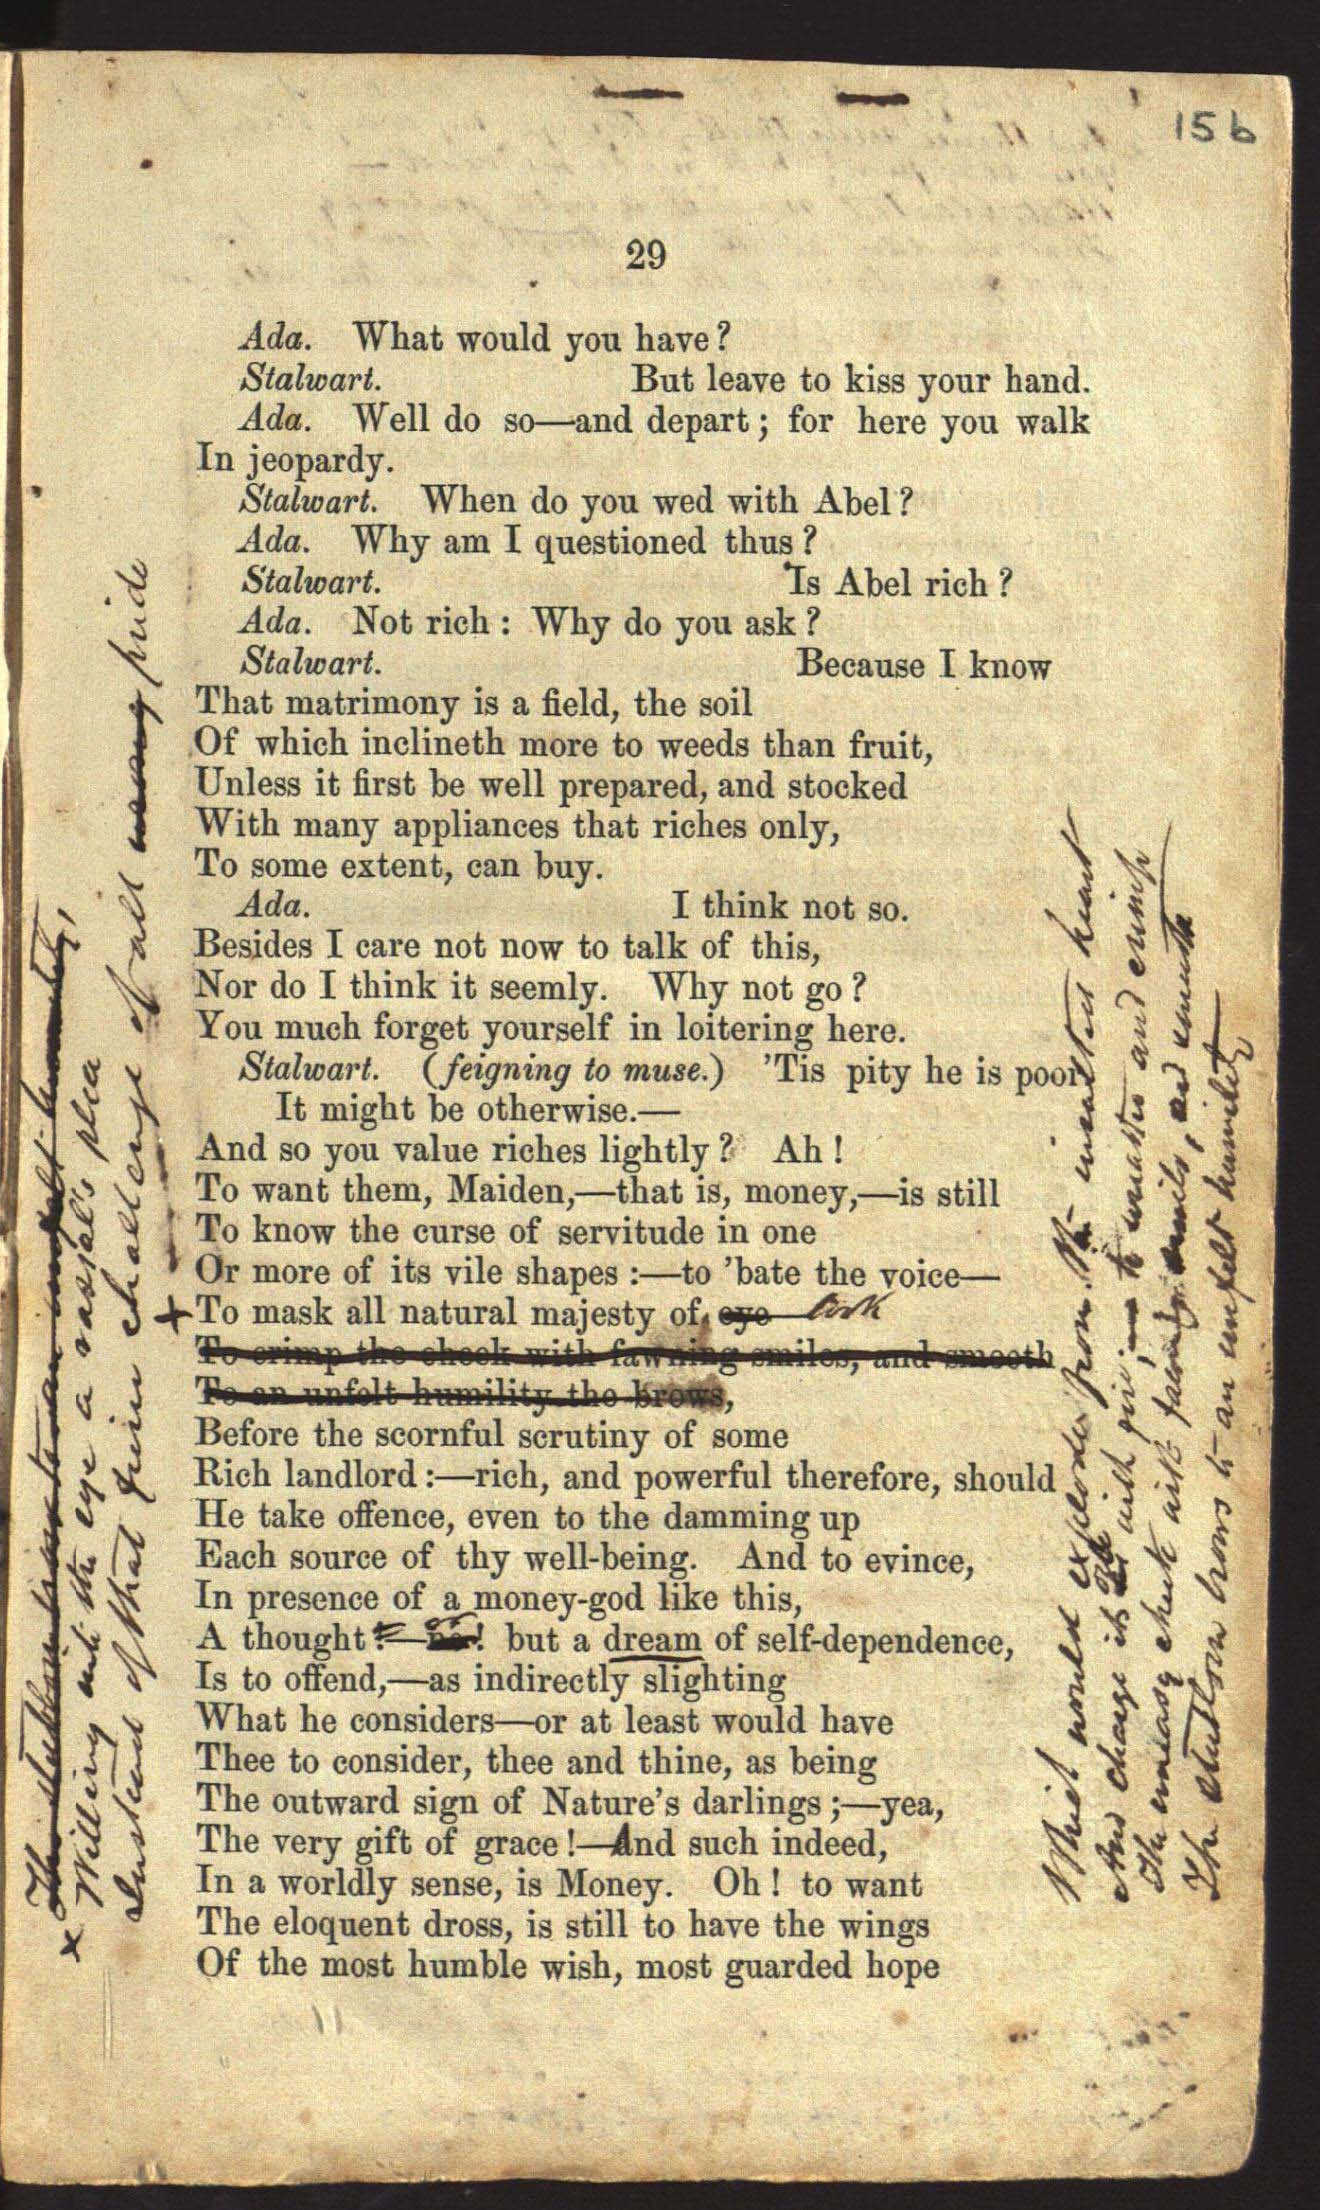 15b
29
Ada. What would you have?
Stalwart. But leave to kiss your hand.
Ada. Well do so—and depart; for here you walk
In jeopardy.
Stalwart. When do you wed with Abel?
Ada. Why am I questioned thus?
Stalwart. Is Abel rich?
Ada. Not rich: Why do you ask?
Stalwart. Because I know
That matrimony is a field, the soil
Of which inclineth more to weeds than fruit,
Unless it first be well prepared, and stocked
With many appliances that riches only,
To some extent, can buy.
Ada. I think not so.
Besides I care not now to talk of this,
Nor do I think it seemly. Why not go?
You much forget yourself in loitering here.
Stalwart. (feigning to muse.) 'Tis pity he is poor
It might be otherwise.—
And so you value riches lightly? Ah!
To want them, Maiden,—that is, money,—is still
To know the curse of servitude in one
Or more of its vile shapes:—to 'bate the voice—
x To mask all natural majesty of eye look
To crimp the cheek with fawning smiles, and smooth
To an unfelt humility the brows,
Before the scornful scrutiny of some
Rich landlord:—rich, and powerful therefore, should
He take offence, even to the damming up
Each source of thy well-being. And to evince,
In presence of a money-god like this,
A thought—no! but a dream of self-dependence,
Is to offend,—as indirectly slighting
What he considers—or at least would have
Thee to consider, thee and thine, as being
The outward sign of Nature's darlings;—yea,
The very gift of grace!—And such indeed,
In a worldly sense, is Money. Oh! to want
The eloquent dross, is still to have the wings
Of the most humble wish, most guarded hope
x The stubborn brows to an unfelt humility,
Willing with the eye a vassal's plea
Instead of that grim challenge of all pride
Whilst would explode from the insulted heart
And charge it with fire;— to and crimp
The uneasy cheek with fawning smiles, and smooth
The stubborn brows to an unfelt humility